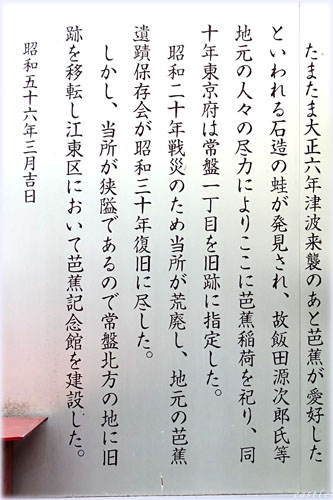 たまたま大正六年津波来襲のあと芭蕉が愛好した
といわれる石造の蛙が発見され、故飯田源次郎氏等
地元の人々の尽力によりここに芭蕉稲荷を祀り、同
十年東京府は常盤一丁目を旧跡に指定した。
昭和二十年戦災のため当所が荒廃し、地元の芭蕉
遺蹟保存会が昭和三十年復旧に尽した。
しかし、当所が狭隘であるので常盤北方の地に旧
跡を移転し江東区において芭蕉記念館を建設した。
昭和五十六年三月吉日